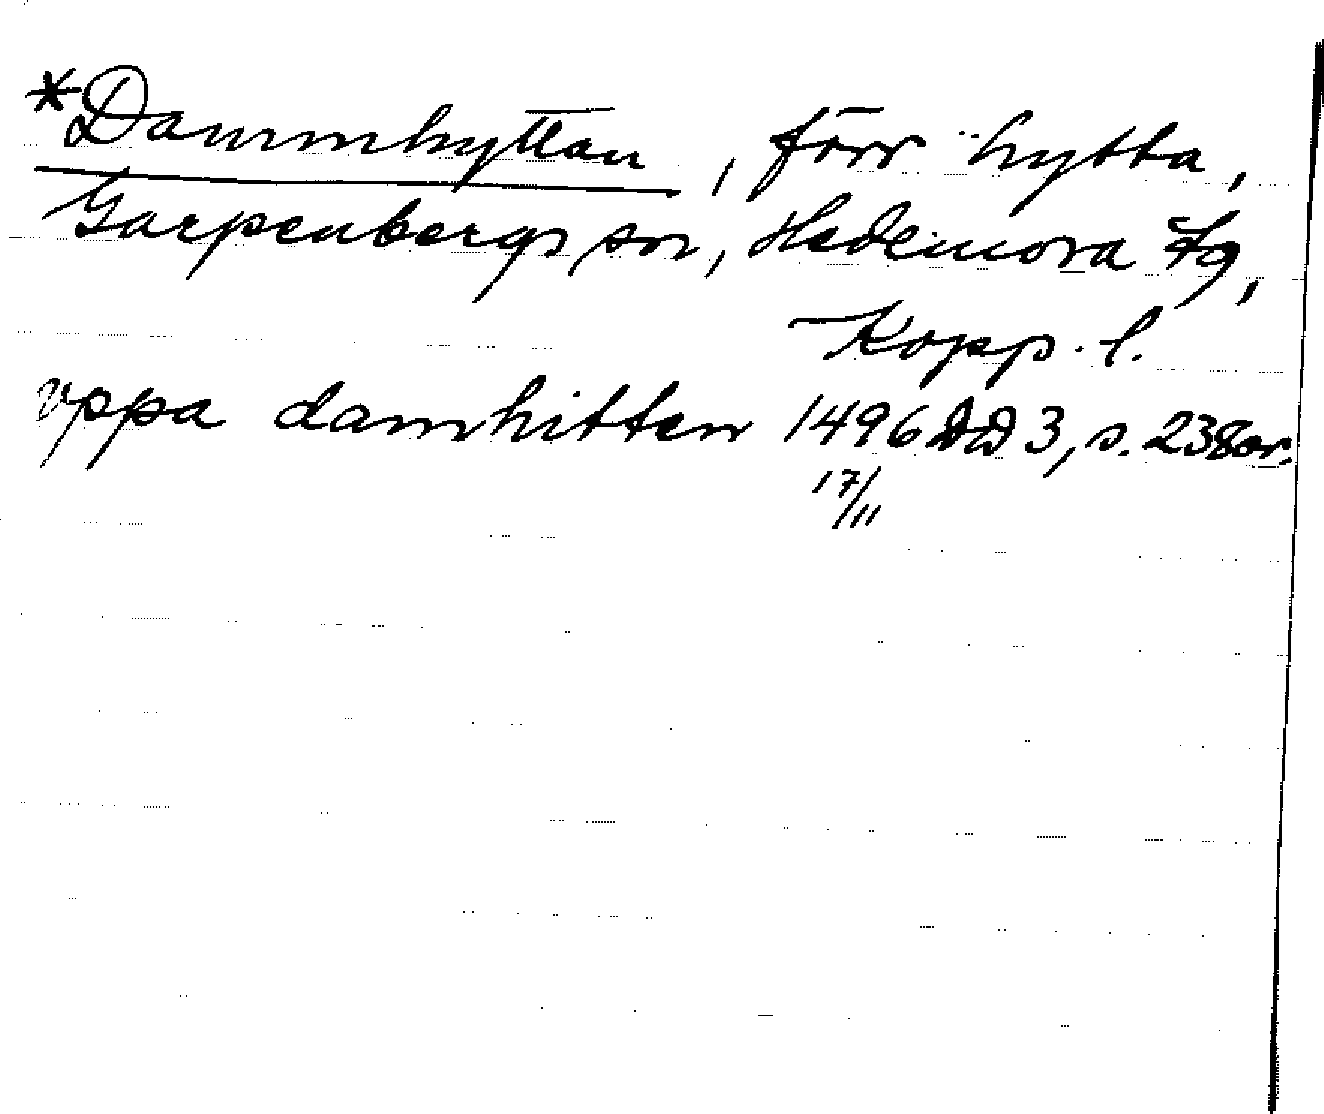 *Dammhyttan, förr hytta,
Garpenbergs sn, Hedemora tg,
Kopp. l.
vppa damhitten 1496 DD 3, s. 238 or.
17/11